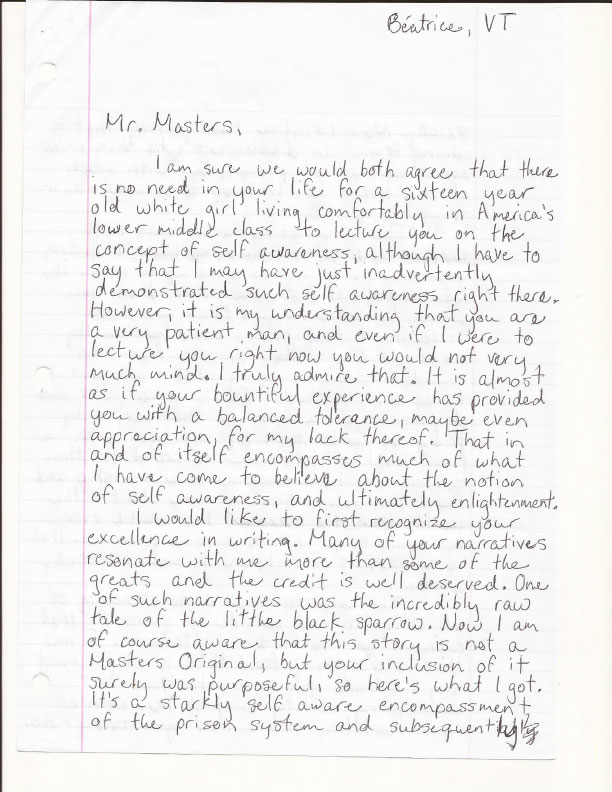 Béatrice, VT
Mr. Masters,
I am sure we would both agree that there
is no need in your life for a sixteen year
old white girl living comfortably in America's
lower middle class to lecture you on the
concept of self awareness, although I have to
say that I may have just inadvertently
demonstrated such self awareness right there.
However, it is my understanding that you are
a very patient man, and even if I were to
lecture you right now you would not very
much mind. I truly admire that. It is almost
as if your bountiful experience has provided
you with a balanced tolerance, maybe even
appreciation, for my lack thereof. That in
and of itself encompasses much of what
I have come to believe about the notion
of self awareness, and ultimately enlightenment.
I would like to first recognize your
excellence in writing. Many of your narratives
resonate with me more than some of the
greats and the credit is well deserved. One
of such narratives was the incredibly raw
tale of the little black sparrow. Now I am
of course aware that this story is not a
Masters Original, but your inclusion of it
surely was purposeful, so here's what I got.
It's a starkly self aware encompassment
of the prison system and subsequently